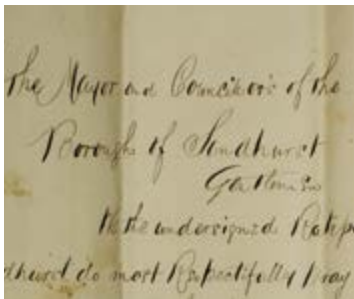 The Mayor and Councillors of the
Borough of Sandhurst
Gentlemen
We the undersigned Ratep
dhurst do most Respectfully pray